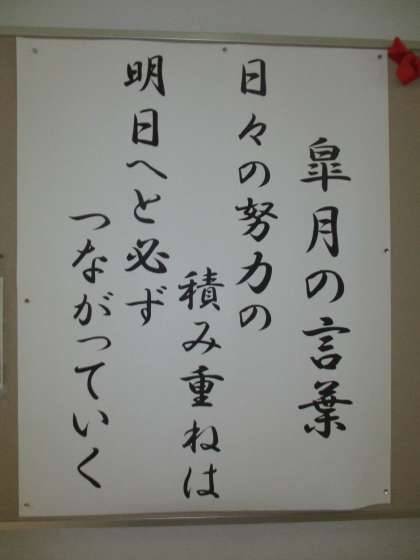 皐月の言葉
日々の努力の
積み重ねは
明日へと必ず
つながっていく